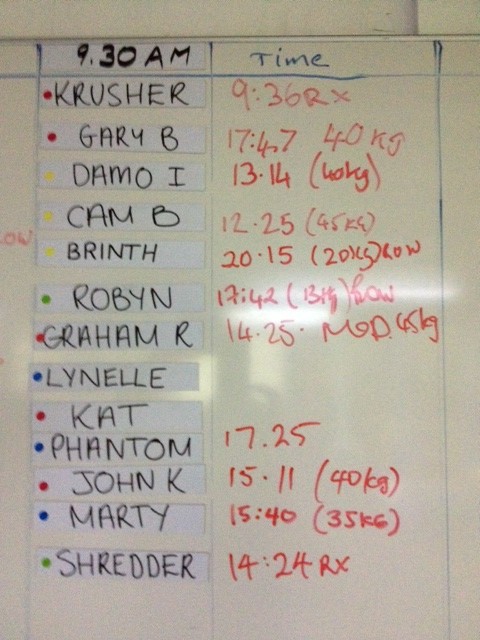 9.30 AM Time
KRUSHER 9:36 RX
GARY B 17:47 40kg
DAMO I 13.14 (40kg)
CAM B 12.25 (45KG)
ROW
BRINTH 20.15 (20kg) ROW
ROBYN 17:42 (13kg) ROW
GRAHAM R 14.25. MOD. 45kg
LYNELLE
KAT
PHANTOM 17.25
JOHN K 15.11 (40kg)
MARTY 15:40 (35KG)
SHREDDER 14:24 RX